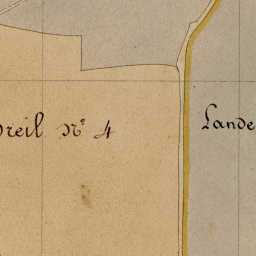 reil N° 4
Lande